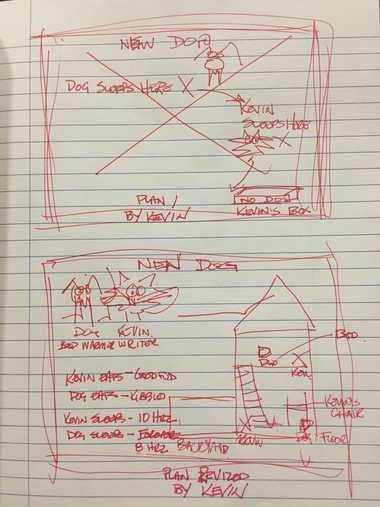 NEW DOG
DOG SLEEPS HERE X
KEVIN
SLEEPS HERE
X
NO DOG
KEVIN'S BOX
PLAN 1
BY KEVIN
NEW DOG
DOG KEVIN
BED WARMER WRITER
BED
KEVIN EATS - GOOD FUD
DOG EATS - KIBBLED
KEVIN SLEEPS - 10 HRZ
DOG SLEEPS -
8 HRZ BACKYARD
KEVIN'S
CHAIR
FLOOR
PLAN REVIZED
BY KEVIN